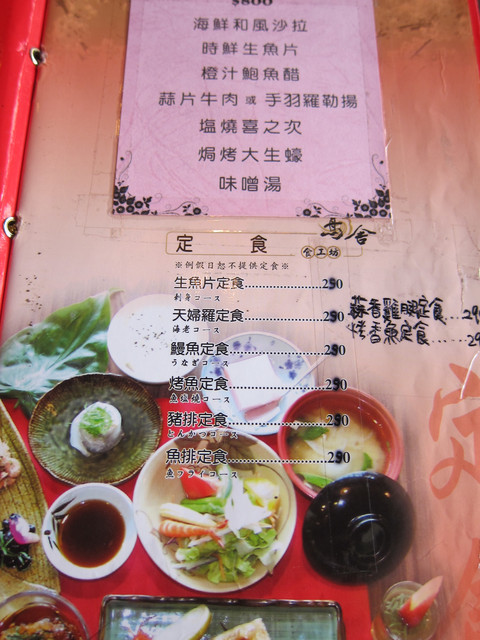 $800
海鮮和風沙拉
時鮮生魚片
橙汁鮑魚醋
蒜片牛肉 或 手羽羅勒揚
塩燒喜之次
焗烤大生蠔
味噌湯
定食
舍
食工坊
※例假日恕不提供定食※
生魚片定食......................250
刺身コース
天婦羅定食......................250
海老コース
鰻魚定食..........................250
うなぎコース
烤魚定食..........................250
魚塩焼コース
豬排定食..........................250
とんかつコース
魚排定食..........................250
魚フライコース
蒜香雞腿定食...290
烤香魚定食......29
定
食